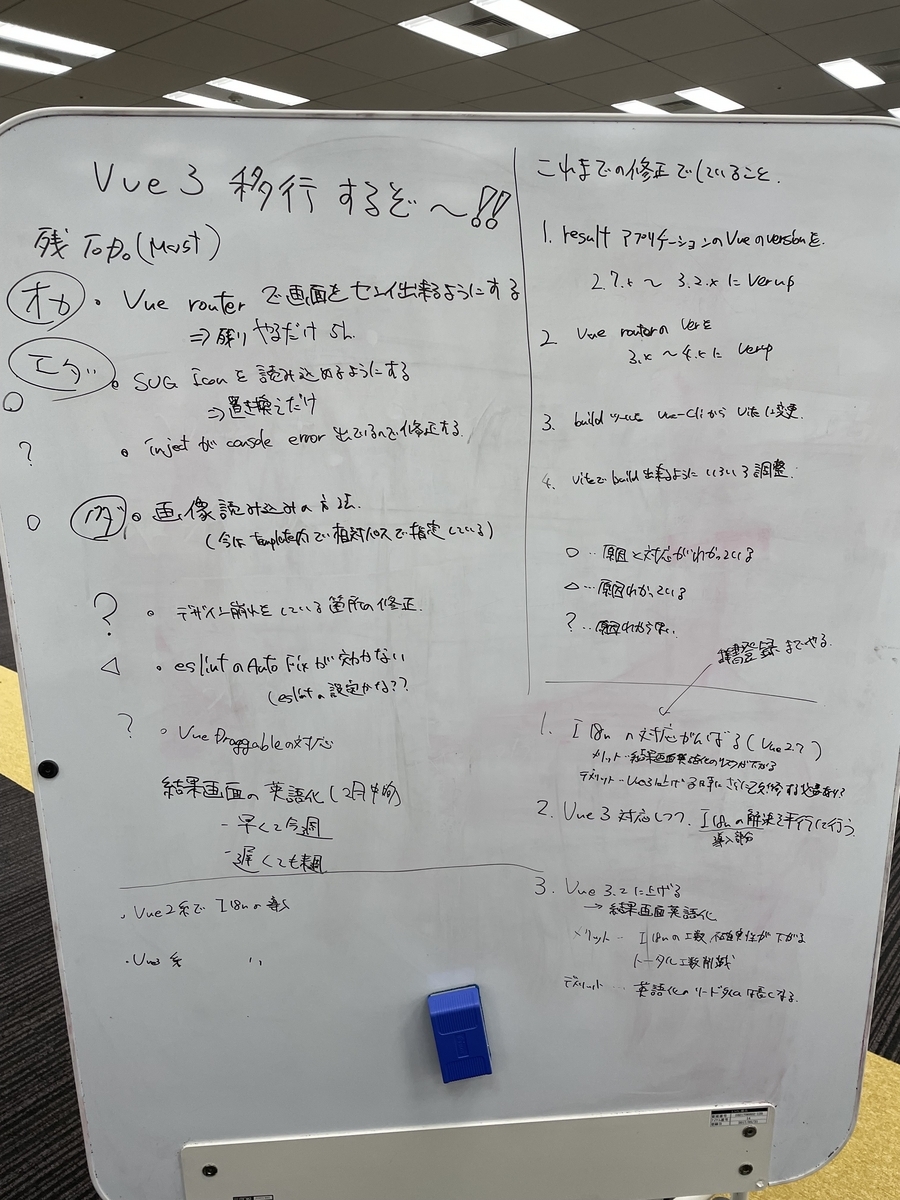 Vue 3 移行するぞ〜!!
残 ToDo (Must)
オカ ・ Vue router で画面をセンイ出来るようにする
⇒ 残り やるだけ 5h
エダ ・ SVG Icon を 読み込めるようにする
○
⇒ 置き換えだけ
? ・ inject が console error 出ているので修正する.
○ ・ 画像読み込みの方法.
(今は template内で相対パスで指定している)
? ・ デザイン崩れをしている箇所の修正.
△ ・ eslint の Auto Fix が効かない
(eslintの設定かな??
? ・ Vue Draggable の対応
結果画面の英語化 (2月中旬)
- 早くて今週
- 遅くても来週
・ Vue2系で I18n の導入
・ Vue3 系 〃
これまでの修正でしていること.
1. result アプリケーションの Vue の version を.
2.7.x 〜 3.2.x に Verup
2 Vue router の Ver を
3.x 〜 4.x に Verup
3. build ツールを vue-cli から Vite に変更.
4. viteで build 出来るように いろいろ 調整.
○ … 原因と対応がわかっている
△ … 原因わかっている
? … 原因わからない
登録までやる.
1. I18n の対応がんばる (Vue2.7)
メリット … 結果画面英語化のリスクが下がる
2. Vue 3 対応しつつ, I18n の解決を平行して行う
導入部分
3. Vue 3.2 に上げる
→ 結果画面英語化
メリット … I18n の工数 不確実性が下がる
トータル工数削減
デメリット … 英語化のリードタイムは長くなる.